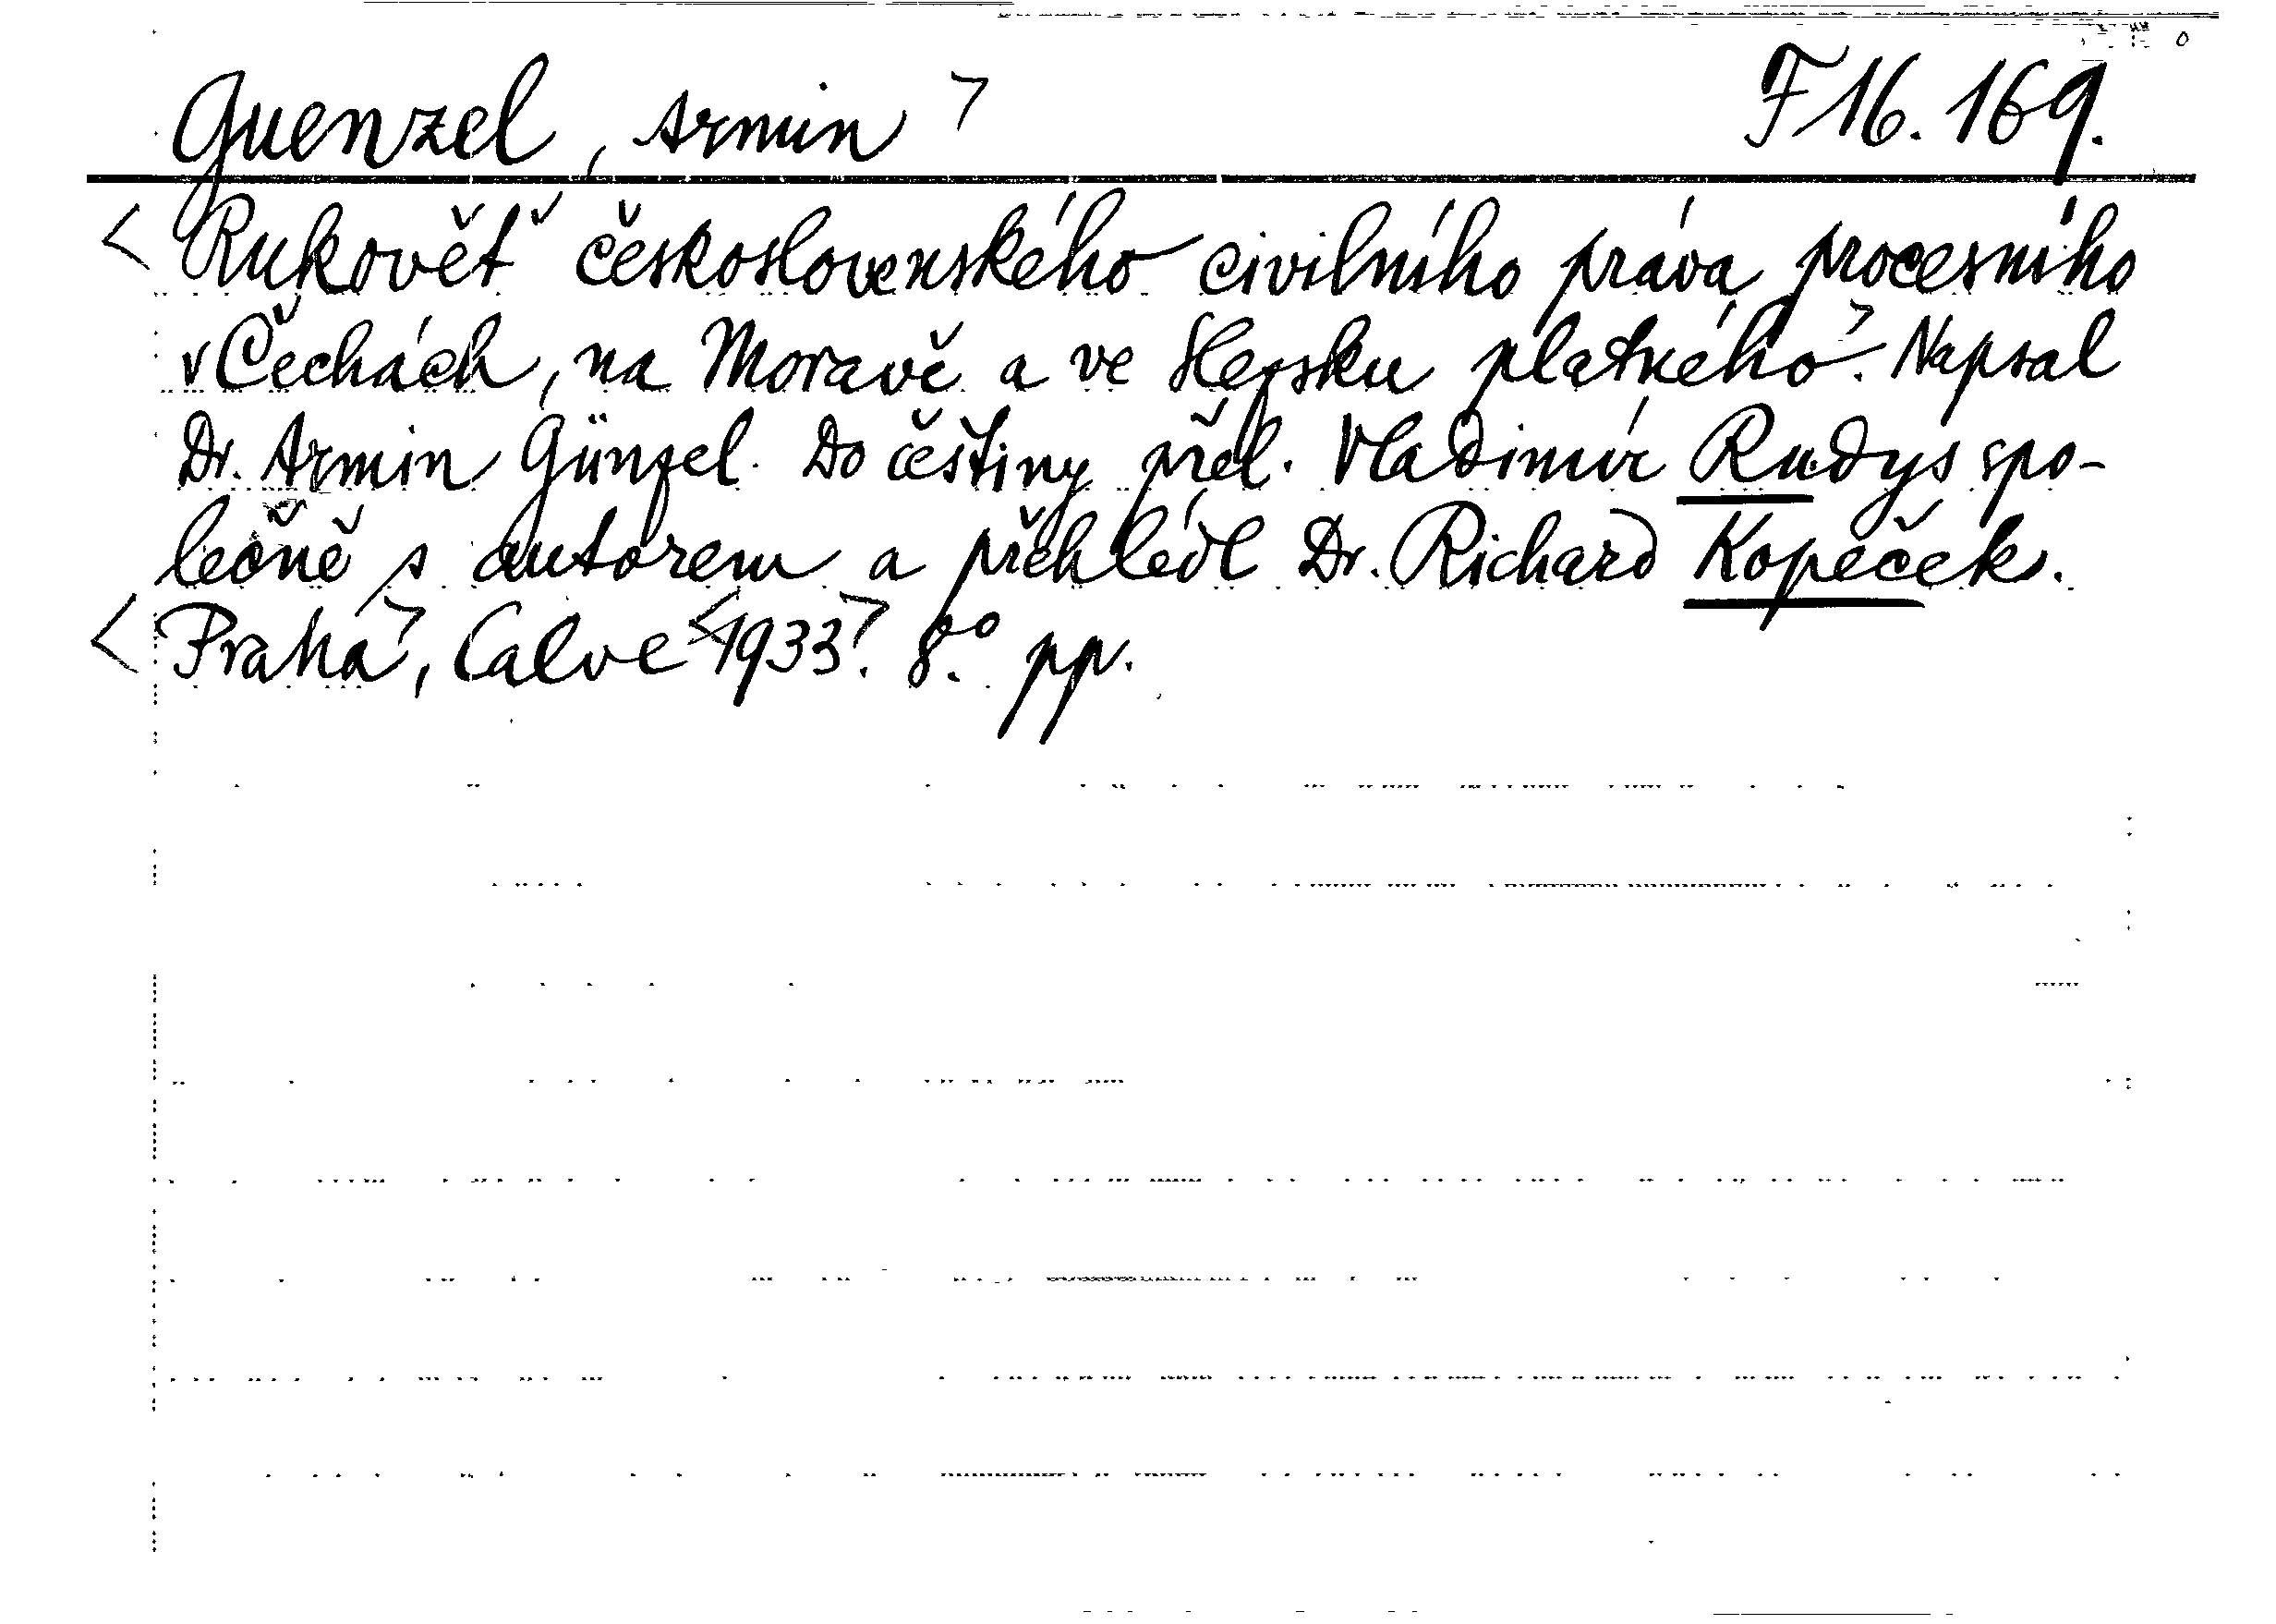 Guenzel, Armin > F 16.169.
< Rukověť československého civilního práva procesního
v Čechách, na Moravě a ve Slezsku platného >. Napsal
Dr. Armin Günzel. Do češtiny přel. Vladimír Rudys spo-
lečně s autorem a přehlédl Dr. Richard Kopeček.
< Praha >, Calve < 1933 >. 8.° pp.